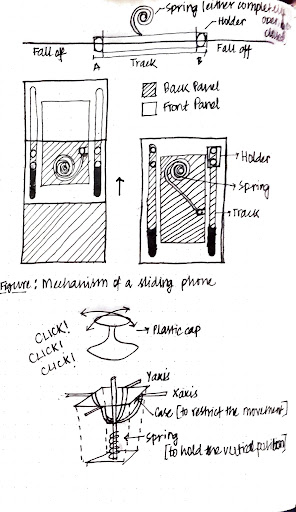 Spring [either completely open or closed]
Holder
Fall off
A
Track
B
Fall off
Back Panel
Front Panel
Holder
Spring
Track
Figure: Mechanism of a sliding phone
CLICK!
CLICK!
CLICK!
Plastic cap
Yaxis
Xaxis
Case [to restrict the movement]
Spring
[to hold the vertical position]